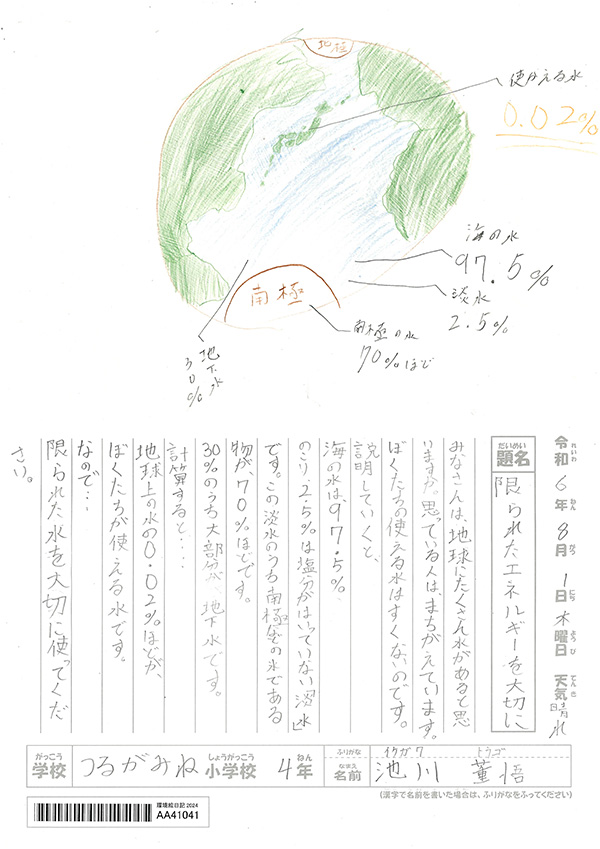 北極
使かえる水
0.02%
海の水
97.5%
淡水
2.5%
南極
南極の氷
70%ほど
地下水
30%
令和6年8月1日木曜日 天気晴れ
れいわ ねん がつ にち ようび てんき
だいめい
題名
限られたエネルギーを大切に
みなさんは、地球にたくさん水があると思
いますか。思っている人は、まちがえています。
ぼくたちの使える水はすくないのです。
説明していくと、
海の水は、97.5%
のこり、2.5%は塩分がはいっていない淡水
です。この淡水のうち南極等の氷である
物が70%ほどです。
30%のうち大部分が、地下水です。
計算すると・・・・
地球上の水の0.02%ほどが、
ぼくたちが使える水です。
なので・・・
限られた水を大切に使ってくだ
さい。
がっこう しょうがっこう ねん
学校 つるがみね小学校 4年
ふりがな イケガワ トウゴ
なまえ
名前 池川 董悟
(漢字で名前を書いた場合は、ふりがなをふってください)
環境絵日記 2024
AA41041